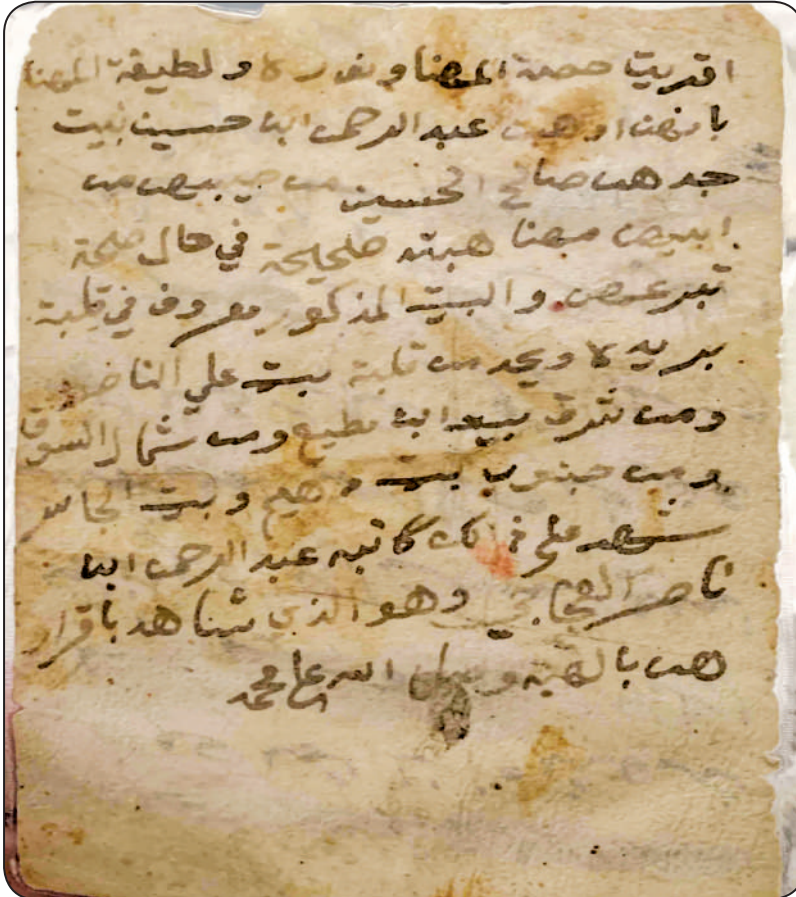 اقريت حصة المهنا ونوره ولطيفة المهنا
بانهن اوهبن عبد الرحمن ابن حسين بيت
جدهن صالح الحسين من
ابيهن مهنا هبته صحيحة في حال صحة
تبرعهن والبيت المذكور معروف في قلبة
بريده ويحد من قبلة بيت علي الناصر
ومن شرق بيت ابن مطيع ومن شمال السوق
ومن جنوب بيت وهيم وبيت الجاسر
شهد على ذالك كاتبه عبد الرحمن ابن
ناصر العجاجي وهو الذي شاهد باقرار
هن بالهبه وصلى الله على محمد